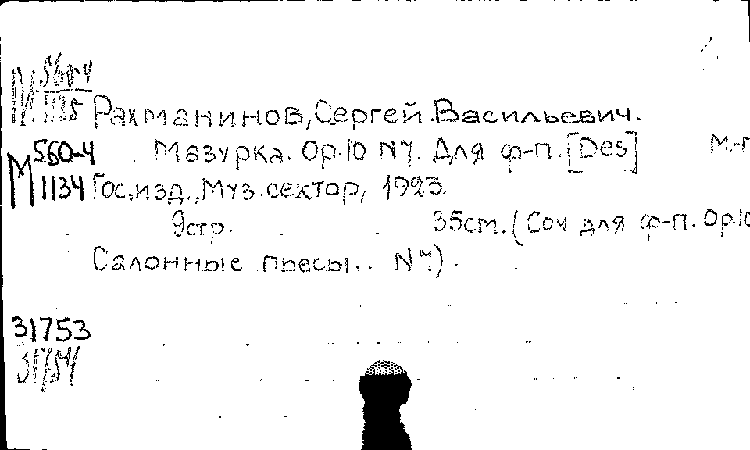 М 560-4
1135 Рахманинов, Сергей Васильевич.
М 560-4 Мазурка. Op.10 N7. Для ф-п. [Des] М.-
1134 Гос. изд., Муз. сектор, 1923.
9стр. 35см. (Соч для ф-п. Op.10
Салонные пьесы.. N7).
31753
31754